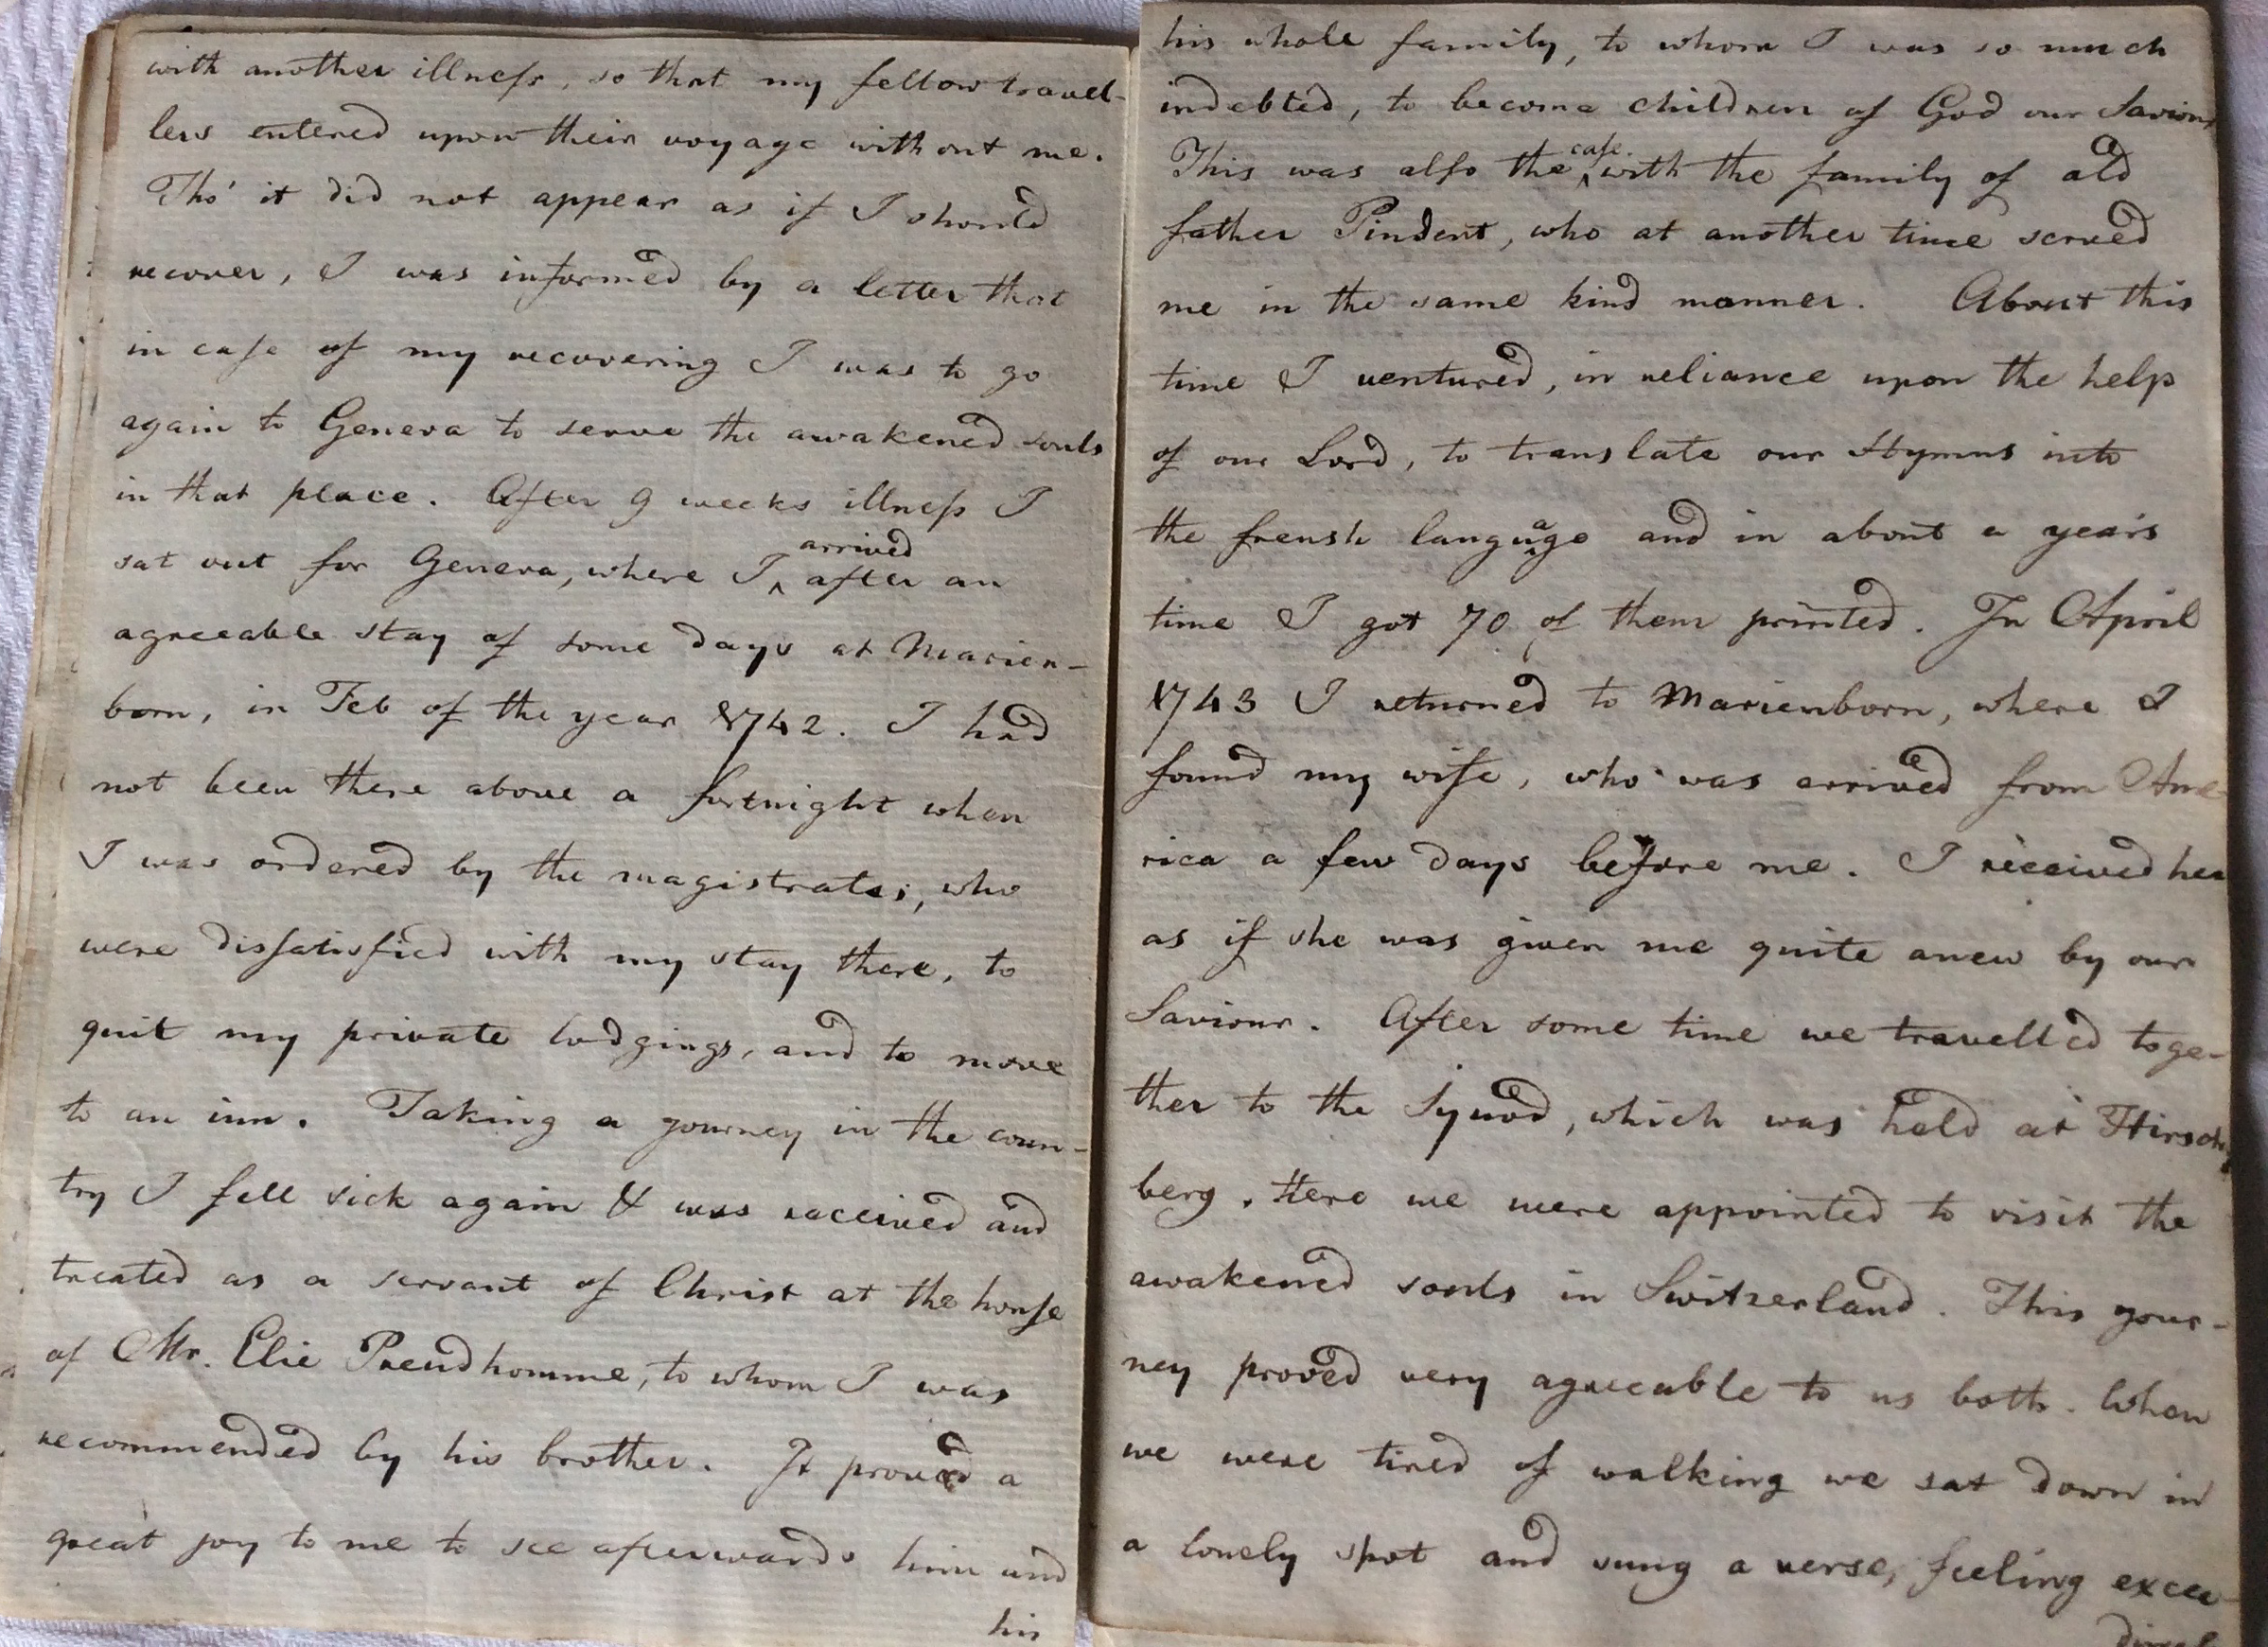 with another illness, so that my fellow travel-
lers entered upon their voyage without me.
Tho' it did not appear as if I should
recover, I was informed by a letter that
in case of my recovering I was to go
again to Geneva to serve the awakened souls
in that place. After 9 weeks illness I
sat out for Geneva, where I ^ arrived after an
agreeable stay of some days at Marien-
born, in Feb of the year 1742. I had
not been there above a fortnight when
I was ordered by the magistrates, who
were dissatisfied with my stay there, to
quit my private lodgings, and to move
to an inn. Taking a journey in the coun-
try I fell sick again & was received and
treated as a servant of Christ at the house
of Mr. Elie Preudhomme, to whom I was
recommended by his brother. It proved a
great joy to me to see afterwards him and
his
his whole family, to whom I was so much
indebted, to become children of God our Saviour
This was also the ^ case with the family of old
father Pindent, who at another time served
me in the same kind manner. About this
time I ventured, in reliance upon the help
of our Lord, to translate our Hymns into
the frensh language and in about a year's
time I got 70 of them printed. In April
1743 I returned to Marienborn, where I
found my wife, who was arrived from Ame-
rica a few days before me. I received her
as if she was given me quite anew by our
Saviour. After some time we travelled toge-
ther to the Synod, which was held at Hirsch-
berg. Here we were appointed to visit the
awakened souls in Switzerland. This jour-
ney proved very agreeable to us both. When
we were tired of walking we sat down in
a lonely spot and sung a verse, feeling excee-